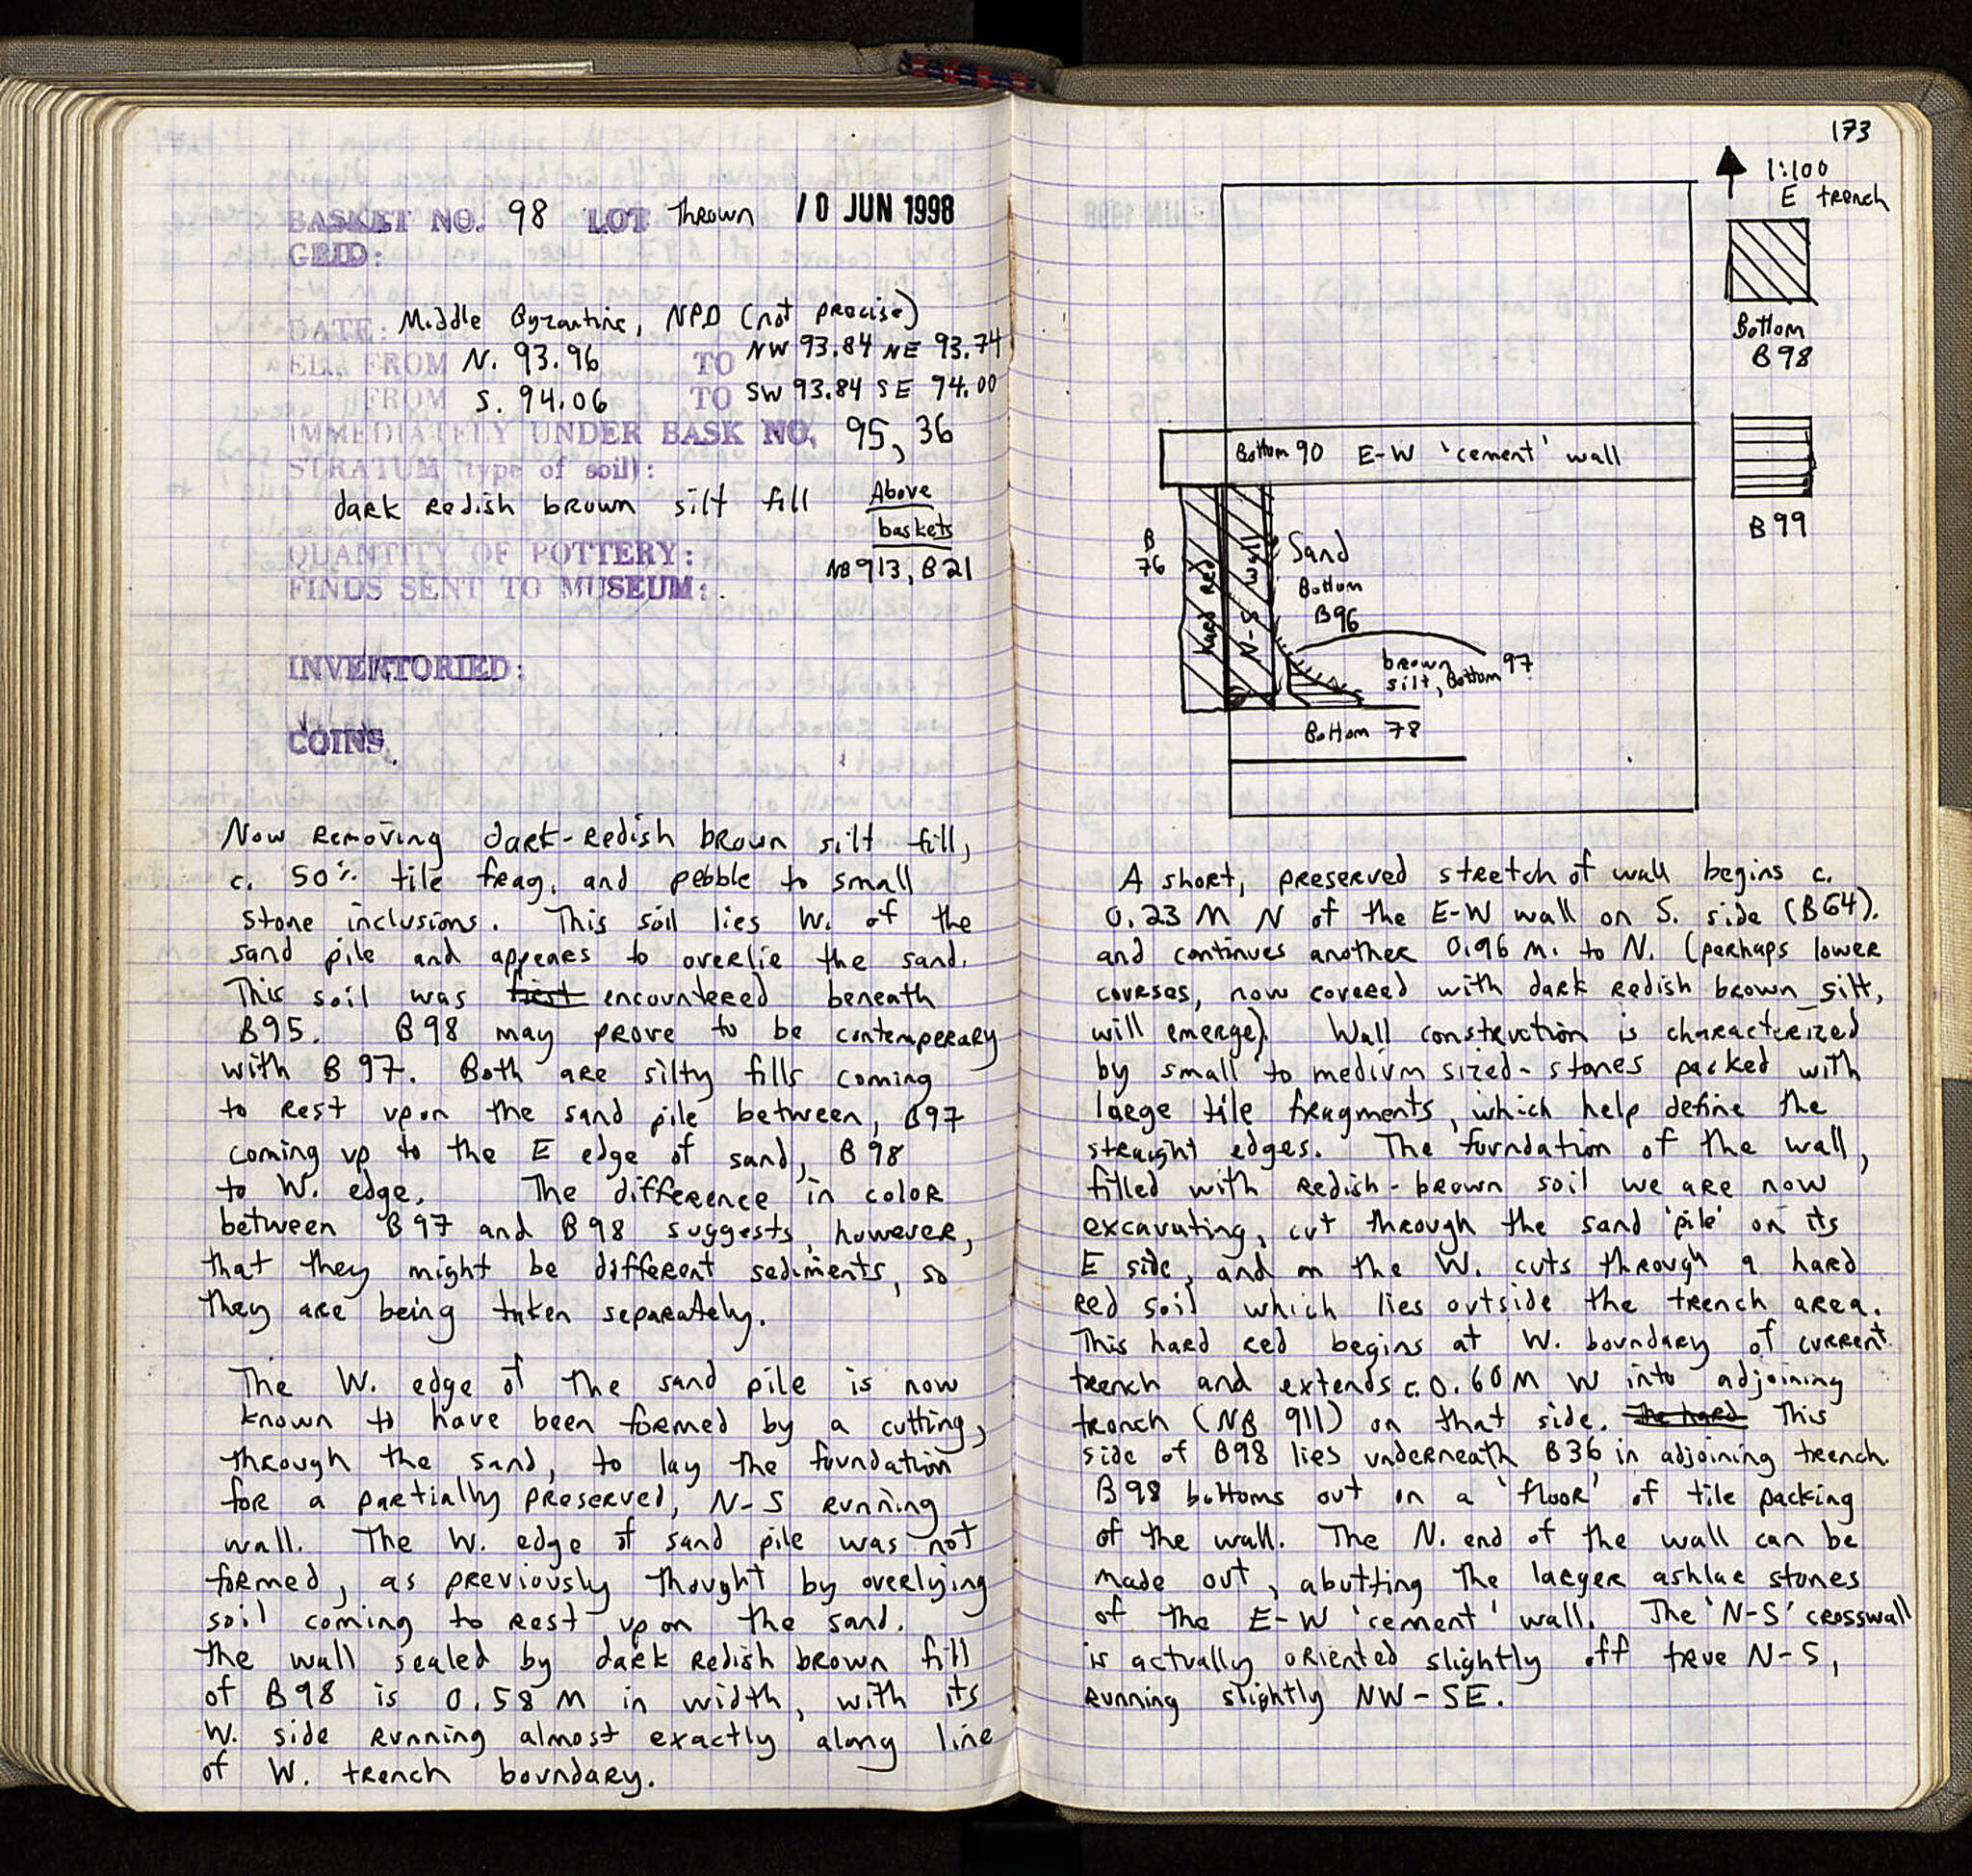 BASKET NO. 98 LOT Thrown 10 JUN 1998
GRID:
DATE: Middle Byzantine, NPD (not precise)
ELE. FROM N. 93.96 TO NW 93.84 NE 93.74
FROM S. 94.06 TO SW 93.84 SE 94.00
IMMEDIATELY UNDER BASK NO. 95, 36
STRATUM (type of soil):
dark redish brown silt fill Above
baskets
QUANTITY OF POTTERY:
NB 913, B21
FINDS SENT TO MUSEUM:
INVENTORIED:
COINS
Now removing dark-redish brown silt fill,
c. 50% tile frag. and pebble to small
stone inclusions. This soil lies W. of the
sand pile and appears to overlie the sand.
This soil was first encountered beneath
B95. B98 may prove to be contemperary
with B97. Both are silty fills coming
to rest upon the sand pile between, B97
coming up to the E edge of sand, B98
to W. edge. The difference in color
between B97 and B98 suggests, however,
that they might be different sediments, so
they are being taken separately.
The W. edge of the sand pile is now
known to have been formed by a cutting,
through the sand, to lay the foundation
for a partially preserved, N-S running
wall. The W. edge of sand pile was not
formed, as previously thought by overlying
soil coming to rest upon the sand.
The wall sealed by dark redish brown fill
of B98 is 0.58 m in width, with its
W. side running almost exactly along line
of W. trench boundary.
173
1:100
E trench
Bottom
B98
B99
Bottom 90 E-W 'cement' wall
B
76
Hard Red
N-S Wall
Sand
Bottom
B96
brown
silt, Bottom 97
Bottom 78
A short, preserved stretch of wall begins c.
0.23 m N of the E-W wall on S. side (B64).
and continues another 0.96 m. to N. (perhaps lower
courses, now covered with dark redish brown silt,
will emerge). Wall construction is characterized
by small to medium sized-stones packed with
large tile fragments, which help define the
straight edges. The foundation of the wall,
filled with redish-brown soil we are now
excavating, cut through the sand 'pile' on its
E side, and on the W. cuts through a hard
red soil which lies outside the trench area.
This hard red begins at W. boundary of current
trench and extends c. 0.60 m W into adjoining
trench (NB 911) on that side. The hard This
side of B98 lies underneath B36 in adjoining trench.
B98 bottoms out on a 'floor' of tile packing
of the wall. The N. end of the wall can be
made out, abutting the larger ashlar stones
of the E-W 'cement' wall. The 'N-S' crosswall
is actually oriented slightly off true N-S,
running slightly NW-SE.